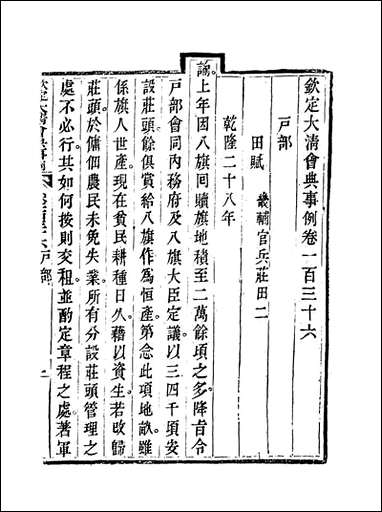 欽定大清會典事例卷一百三十六
戶部
田賦　畿輔官兵莊田二
乾隆二十八年
諭。上年因八旗回贖旗地積至二萬餘頃之多。降旨令
戶部會同內務府及八旗大臣定議。以三四千頃安
設莊頭。餘俱賞給八旗作為恒產。第念此項地畝。雖
係旗人世產。現在貧民耕種日久。藉以資生。若改歸
莊頭。於傭佃農民未免失業。所有分設莊頭管理之
處不必行。其如何按則交租。並酌定章程之處。著軍
戶部